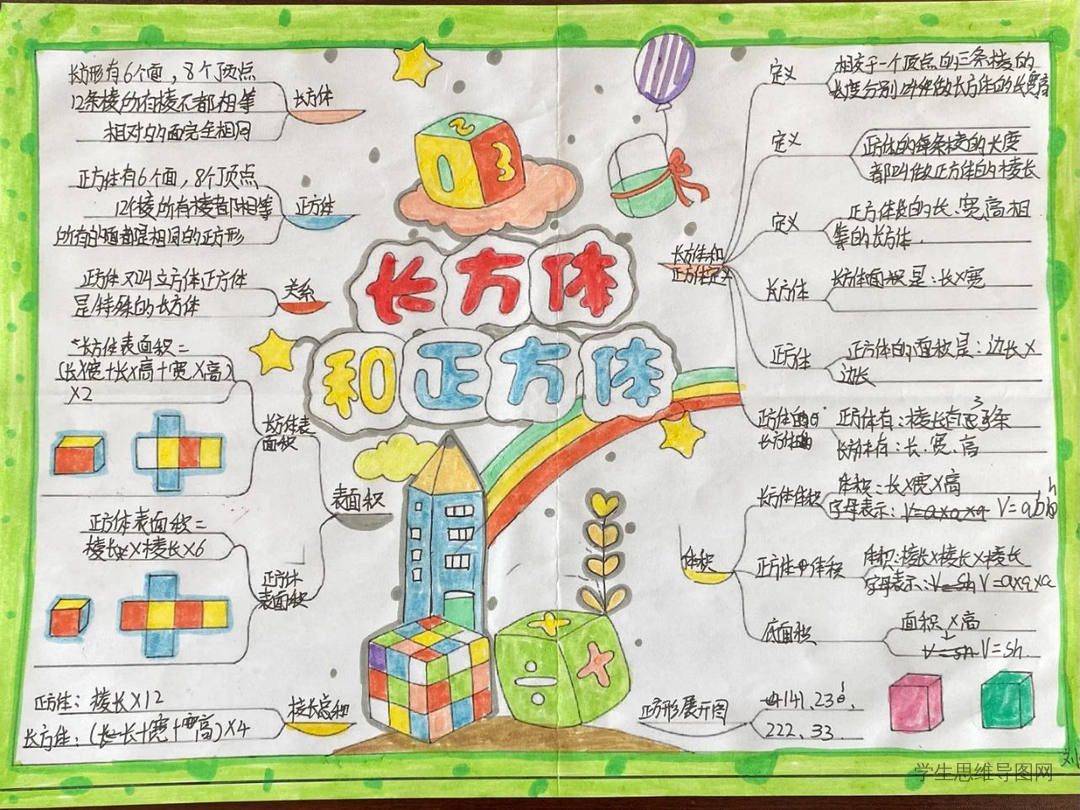 长方形有6个面，8个顶点
12条棱所有棱不都相等
相对的面完全相同
长方体
正方体有6个面，8个顶点
12个棱所有棱都相等
所有的面都是相同的正方形
正方体
正方体又叫立方体正方体
是特殊的长方体
关系
长方体表面积=
(长×宽+长×高+宽×高)
×2
长方体表
面积
表面积
正方体表面积=
棱长×棱长×6
正方体
表面积
正方体：棱长×12
长方体：(长+宽+高)×4
棱长总和
0 2 3
长方体
和正方体
定义
相交于一个顶点的三条棱的
长度分别叫做长方体的长宽高
定义
正方体的每条棱的长度
都叫做正方体的棱长
定义
正方体的长.宽.高相
等的长方体.
长方体和
正方体定义
长方体
长方体面积是：长×宽
正方体
正方体的面积是：边长×
边长
正方体的
长方体
正方体有：棱长有3条
长方体有：长.宽.高
体积
长方体体积
体积：长×宽×高
字母表示：V=abh
正方体体积
体积:棱长×棱长×棱长
字母表示:V=a×a×a
底面积
面积×高
V=sh
正方形展开图
141.231.
222.33.
÷ + ×
刘
学生思维导图网